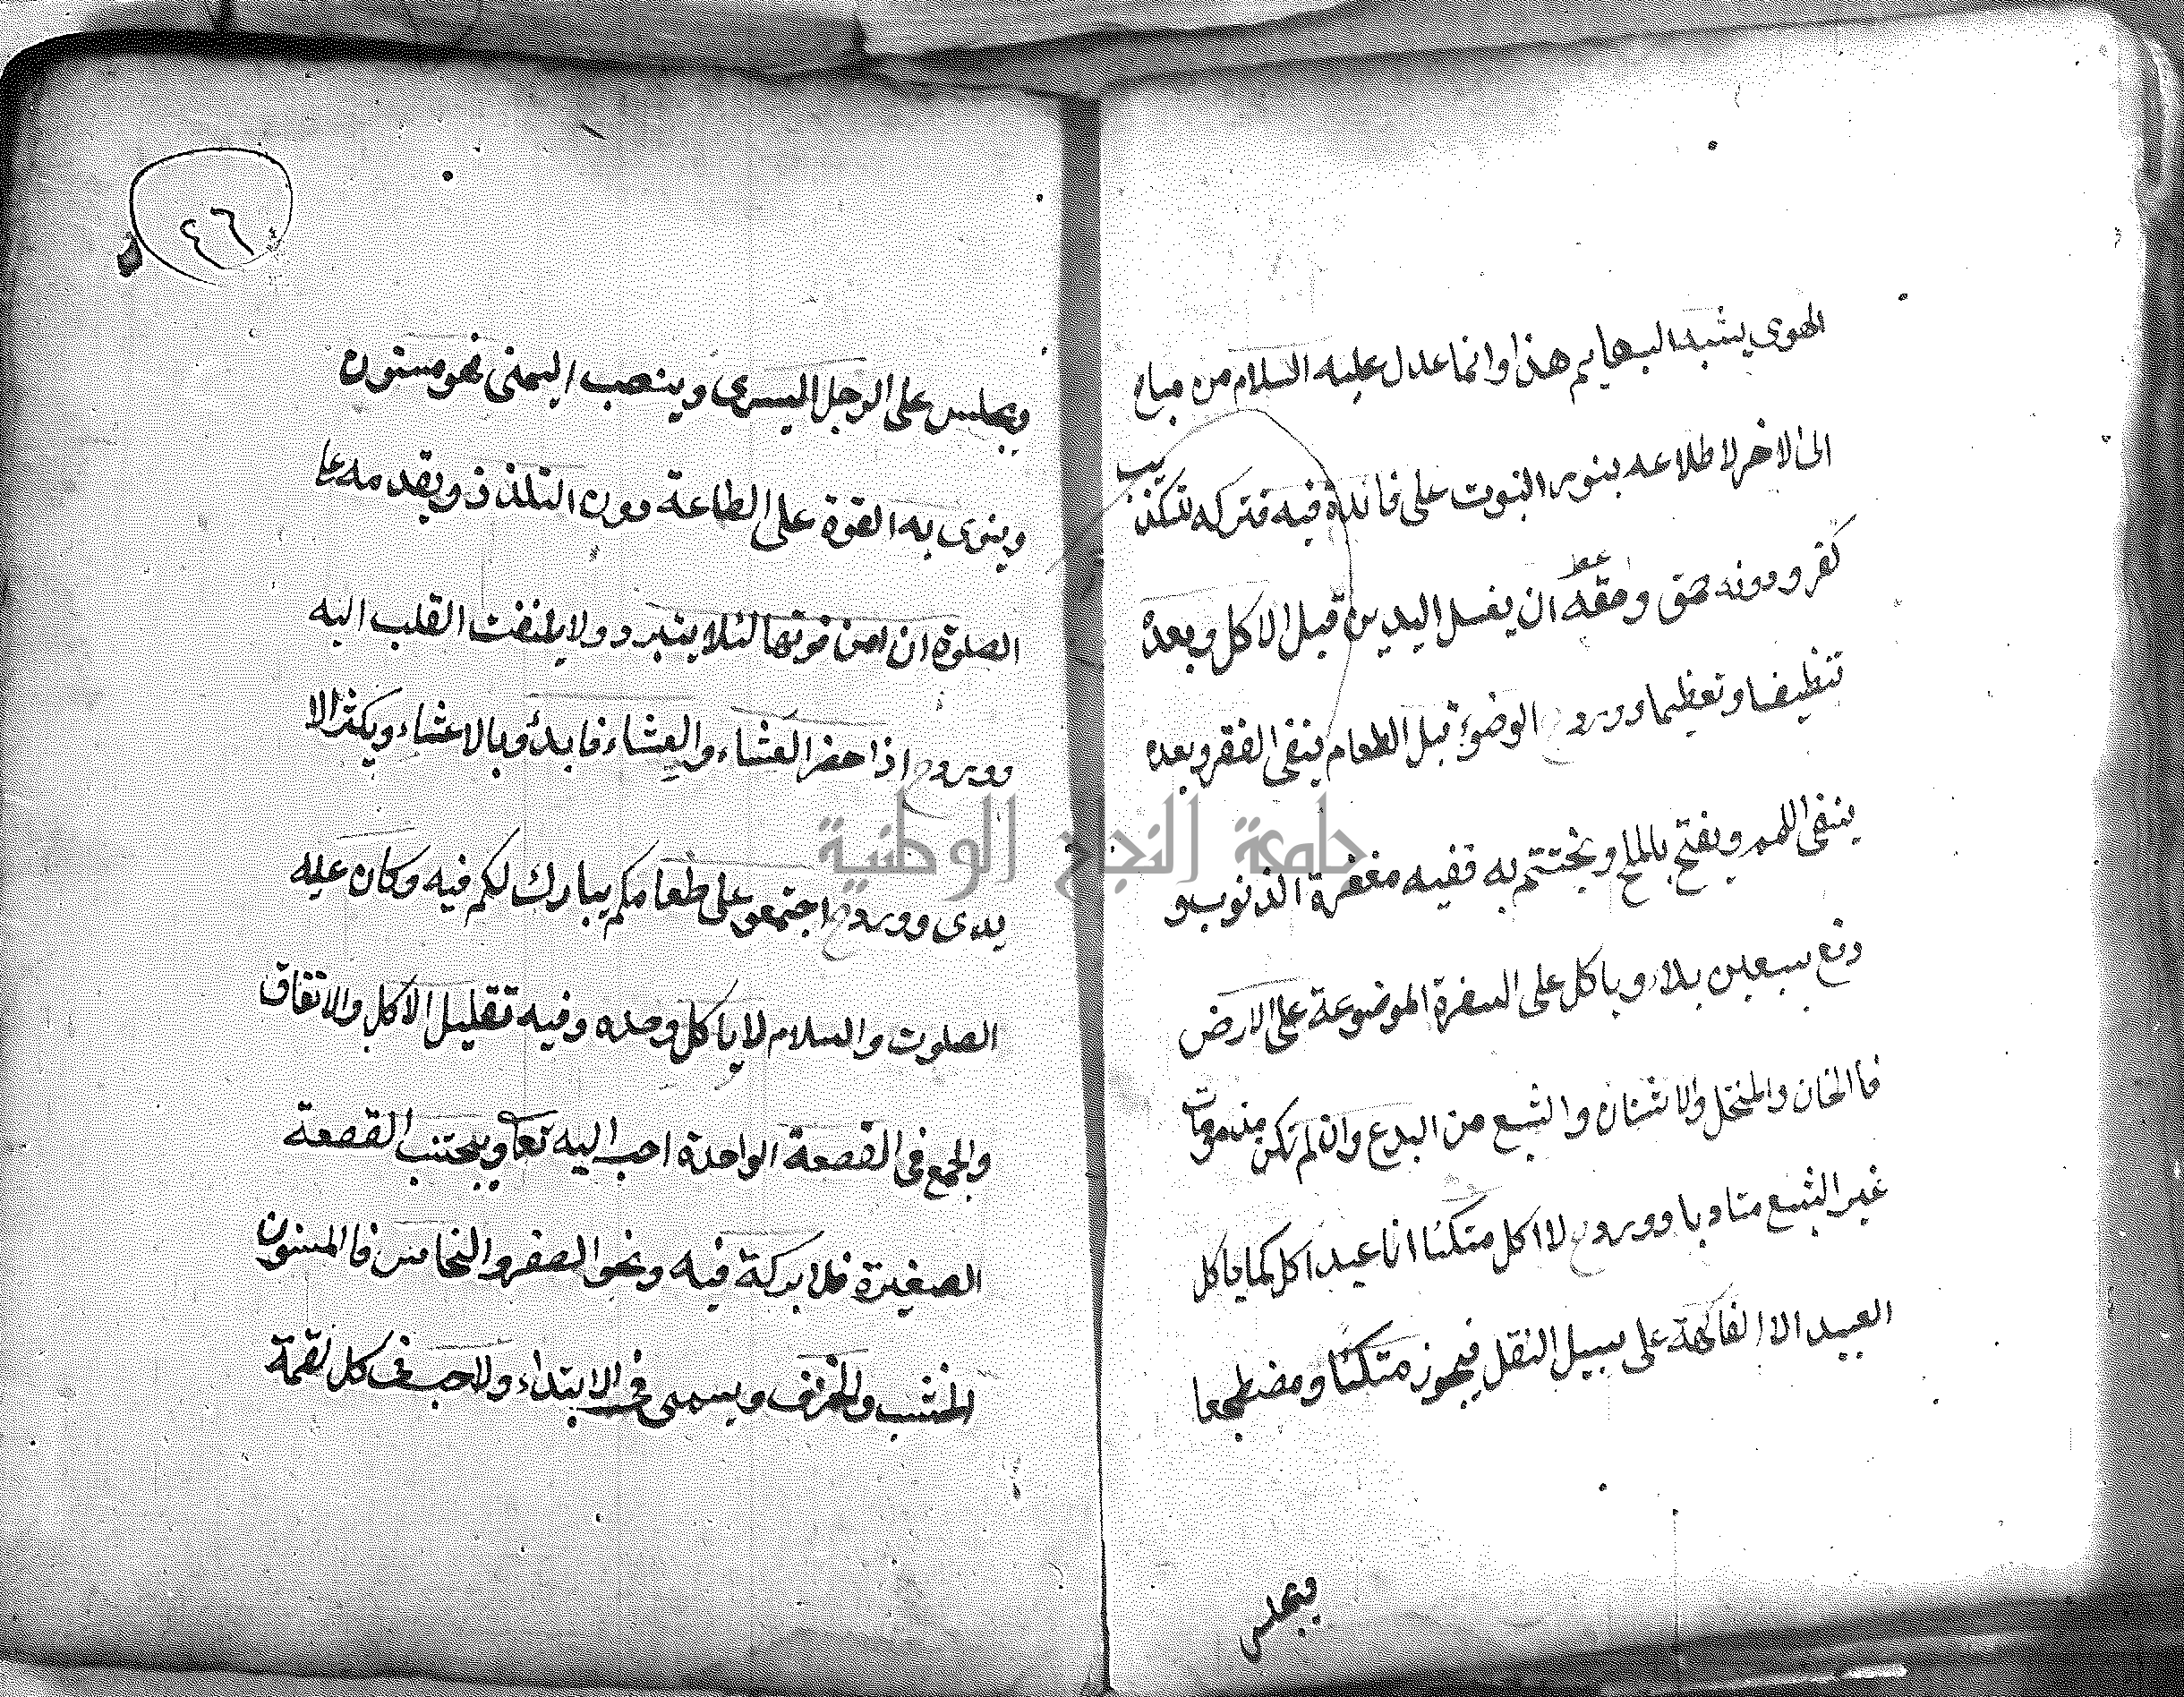 الهوى يشبه البهايم هذا وانما عدل عليه السلام من مباح
الى الاخر لاطلاعه بنور النبوت على فائدة فيه فتركه تكذيب
كفر ودونه حمق وحقه ان يغسل اليدين قبل الاكل وبعده
تنظيفا وتعظيما وورد الوضوء قبل الطعام ينفى الفقر وبعده
ينفى اللمم ويفتح بالملح ويختتم به ففيه مغفرة الذنوب و
دفع سبعين بلاء وياكل على السفرة الموضوعة على الارض
فالخان والمنخل والاشنان والشبع من البدع وان لم تكن مذمومات
غير الشبع متادبا وورد لا اكل متكئا انا عبد اكل كما ياكل
العبيد الا الفاكهة على سبيل النقل فيجوز متكئا ومضطجعا
ويجلس
٤٦
ويجلس على الرجل اليسرى وينصب اليمنى نحو مستون
وينوى به القوة على الطاعة دون التلذذ ويقدمه على
الصلوة ان امن فوتها لئلا يتبرد ولا يلتفت القلب اليه
وورد اذا حضر العشاء والعشاء فابدؤ بالاعشاء ويكثر الا
يدى وورد اجتمعو على طعامكم يبارك لكم فيه وكان عليه
الصلوت والسلام لا ياكل وحده وفيه تقليل الاكل والاتفاق
والجمع فى القصعة الواحدة احب اليه تعا ويجتنب القصعة
الصغيرة فلا بركة فيه ونحو الصفر والنحاس فالمسنون
الخشب والخزف ويسمى فى الابتداء والاحب فى كل لقمة
جامعة النجاح الوطنية